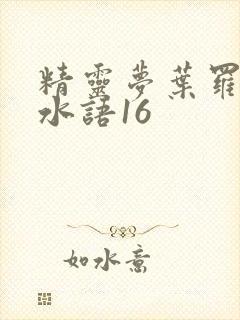 精靈夢葉羅
水語16
如水意